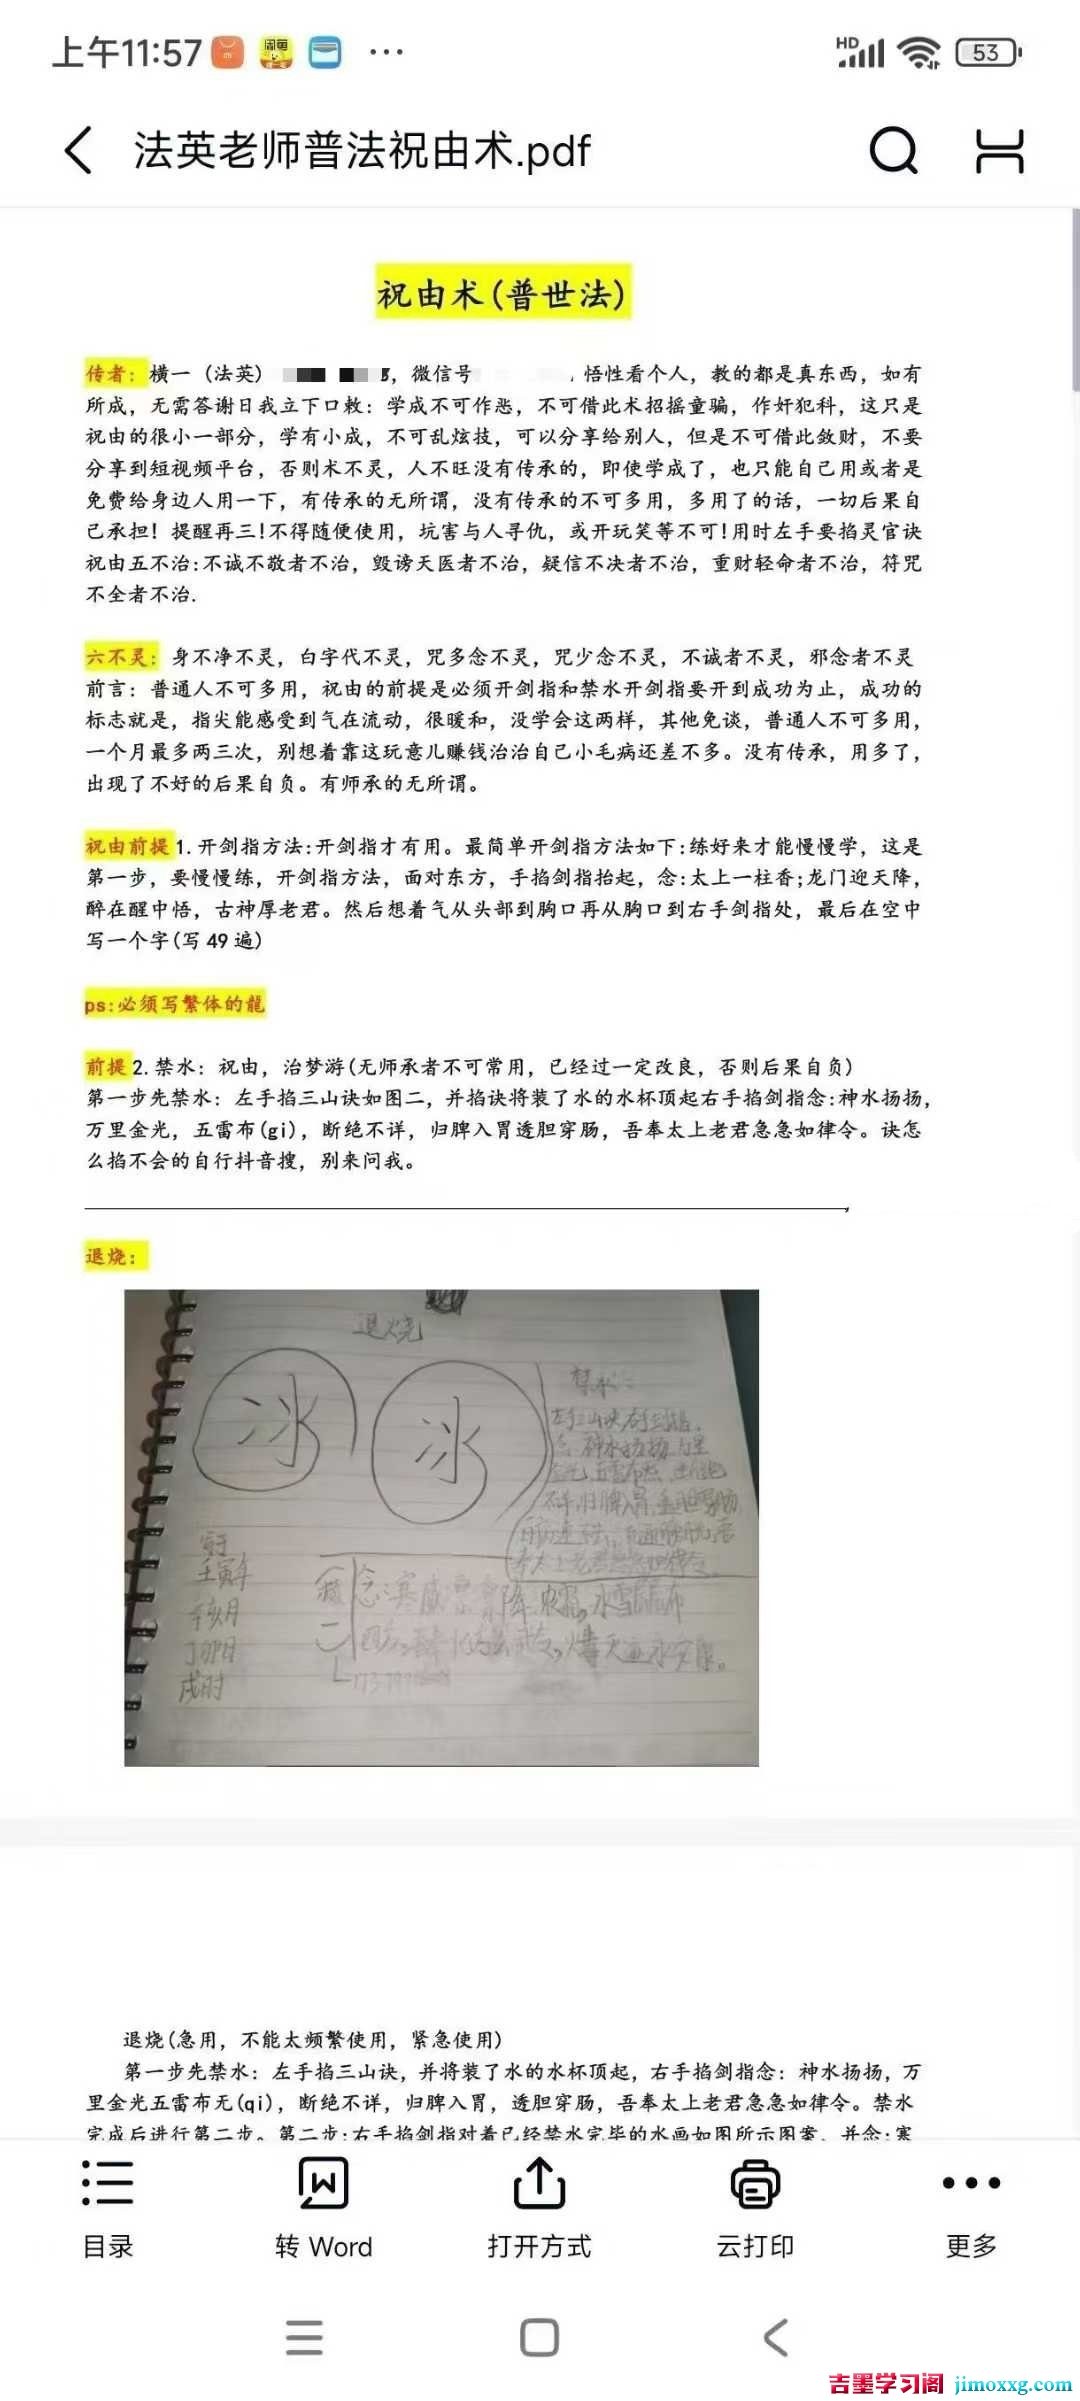 上午11:57
HD
53
法英老师普法祝由术.pdf
祝由术(普世法)
传者：横一（法英） ，微信号 ，悟性看个人，教的都是真东西，如有
所成，无需答谢日我立下口敕：学成不可作恙，不可借此术招摇童骗，作奸犯科，这只是
祝由的很小一部分，学有小成，不可乱炫技，可以分享给别人，但是不可借此敛财，不要
分享到短视频平台，否则术不灵，人不旺没有传承的，即使学成了，也只能自己用或者是
免费给身边人用一下，有传承的无所谓，没有传承的不可多用，多用了的话，一切后果自
己承担！提醒再三!不得随便使用，坑害与人寻仇，或开玩笑等不可!用时左手要掐灵官诀
祝由五不治:不诚不敬者不治，毁谤天医者不治，疑信不决者不治，重财轻命者不治，符咒
不全者不治.
六不灵：身不净不灵，白字代不灵，咒多念不灵，咒少念不灵，不诚者不灵，邪念者不灵
前言：普通人不可多用，祝由的前提是必须开剑指和禁水开剑指要开到成功为止，成功的
标志就是，指尖能感受到气在流动，很暖和，没学会这两样，其他免谈，普通人不可多用，
一个月最多两三次，别想着靠这玩意儿赚钱治治自己小毛病还差不多。没有传承，用多了，
出现了不好的后果自负。有师承的无所谓。
祝由前提1.开剑指方法:开剑指才有用。最简单开剑指方法如下:练好来才能慢慢学，这是
第一步，要慢慢练，开剑指方法，面对东方，手掐剑指抬起，念:太上一柱香;龙门迎天降，
醉在醒中悟，古神厚老君。然后想着气从头部到胸口再从胸口到右手剑指处，最后在空中
写一个字(写49遍)
ps:必须写繁体的龍
前提2.禁水：祝由，治梦游(无师承者不可常用，已经过一定改良，否则后果自负)
第一步先禁水：左手掐三山诀如图二，并掐诀将装了水的水杯顶起右手掐剑指念:神水扬扬，
万里金光，五雷布(gi)，断绝不详，归脾入胃透胆穿肠，吾奉太上老君急急如律令。诀怎
么掐不会的自行抖音搜，别来问我。
退烧：
退烧
冰
冰
禁水:
左手三山诀右手剑指,
念 神水扬扬 万里
壬寅年
辛亥月
丁卯日
戌时
退烧(急用，不能太频繁使用，紧急使用)
第一步先禁水：左手掐三山诀，并将装了水的水杯顶起，右手掐剑指念：神水扬扬，万
里金光五雷布无(qi)，断绝不详，归脾入胃，透胆穿肠，吾奉太上老君急急如律令。禁水
完成后进行第二步。第二步:右手掐剑指对着已经禁水完毕的水画如图所示图案，并念:寒
目录
转 Word
打开方式
云打印
更多
吉墨学习阁 jimoxxg.com